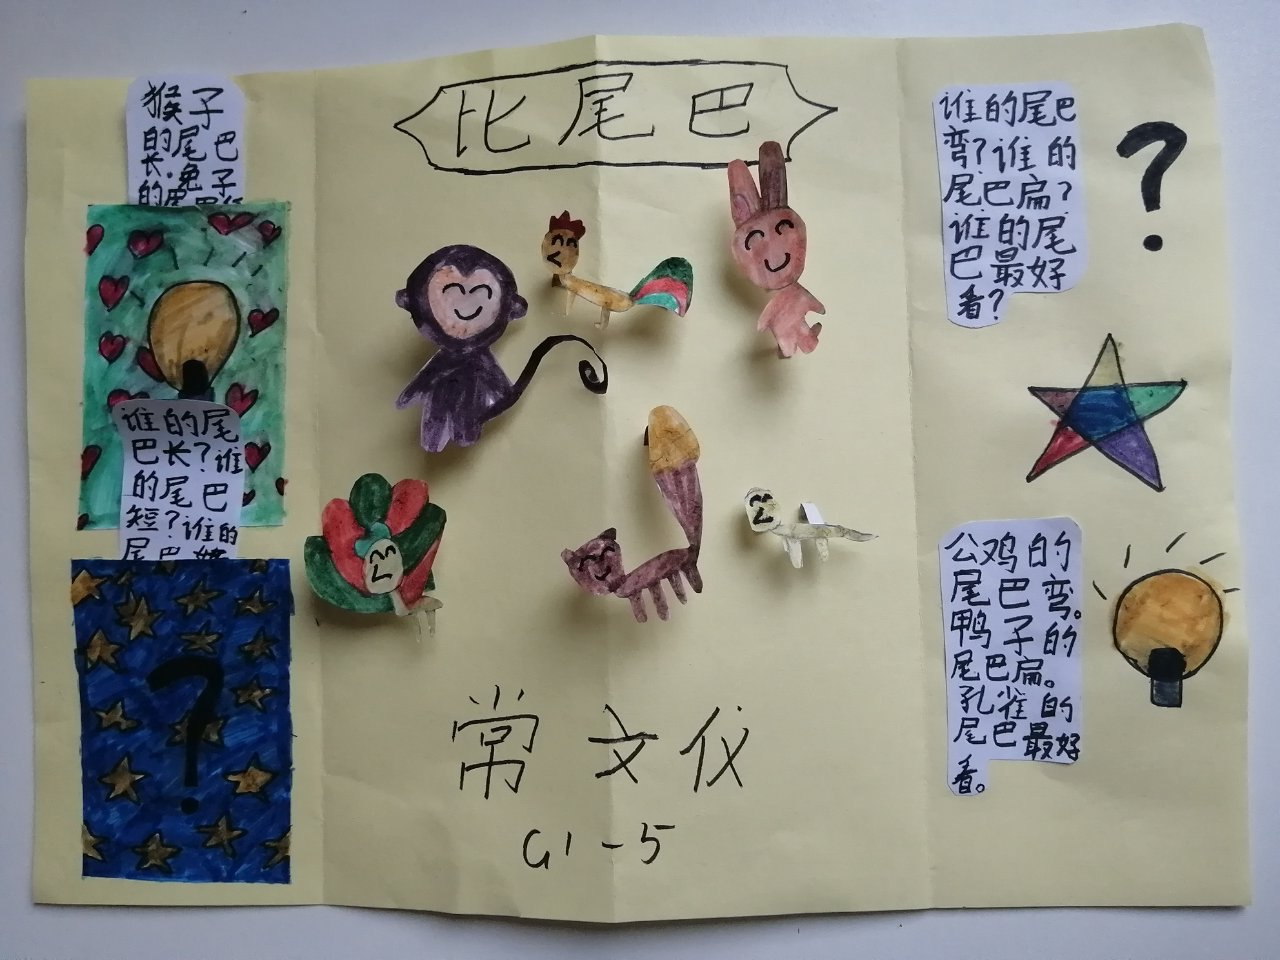 比尾巴
猴子
的尾巴
长。兔子
的尾巴
谁的尾
巴长？谁
的尾巴
短？谁的
尾巴
谁的尾巴
弯？谁的
尾巴扁？
谁的尾
巴最好
看？
公鸡的
尾巴弯。
鸭子的
尾巴扁。
孔雀的
尾巴最好
看。
?
?
常文仪
G1-5